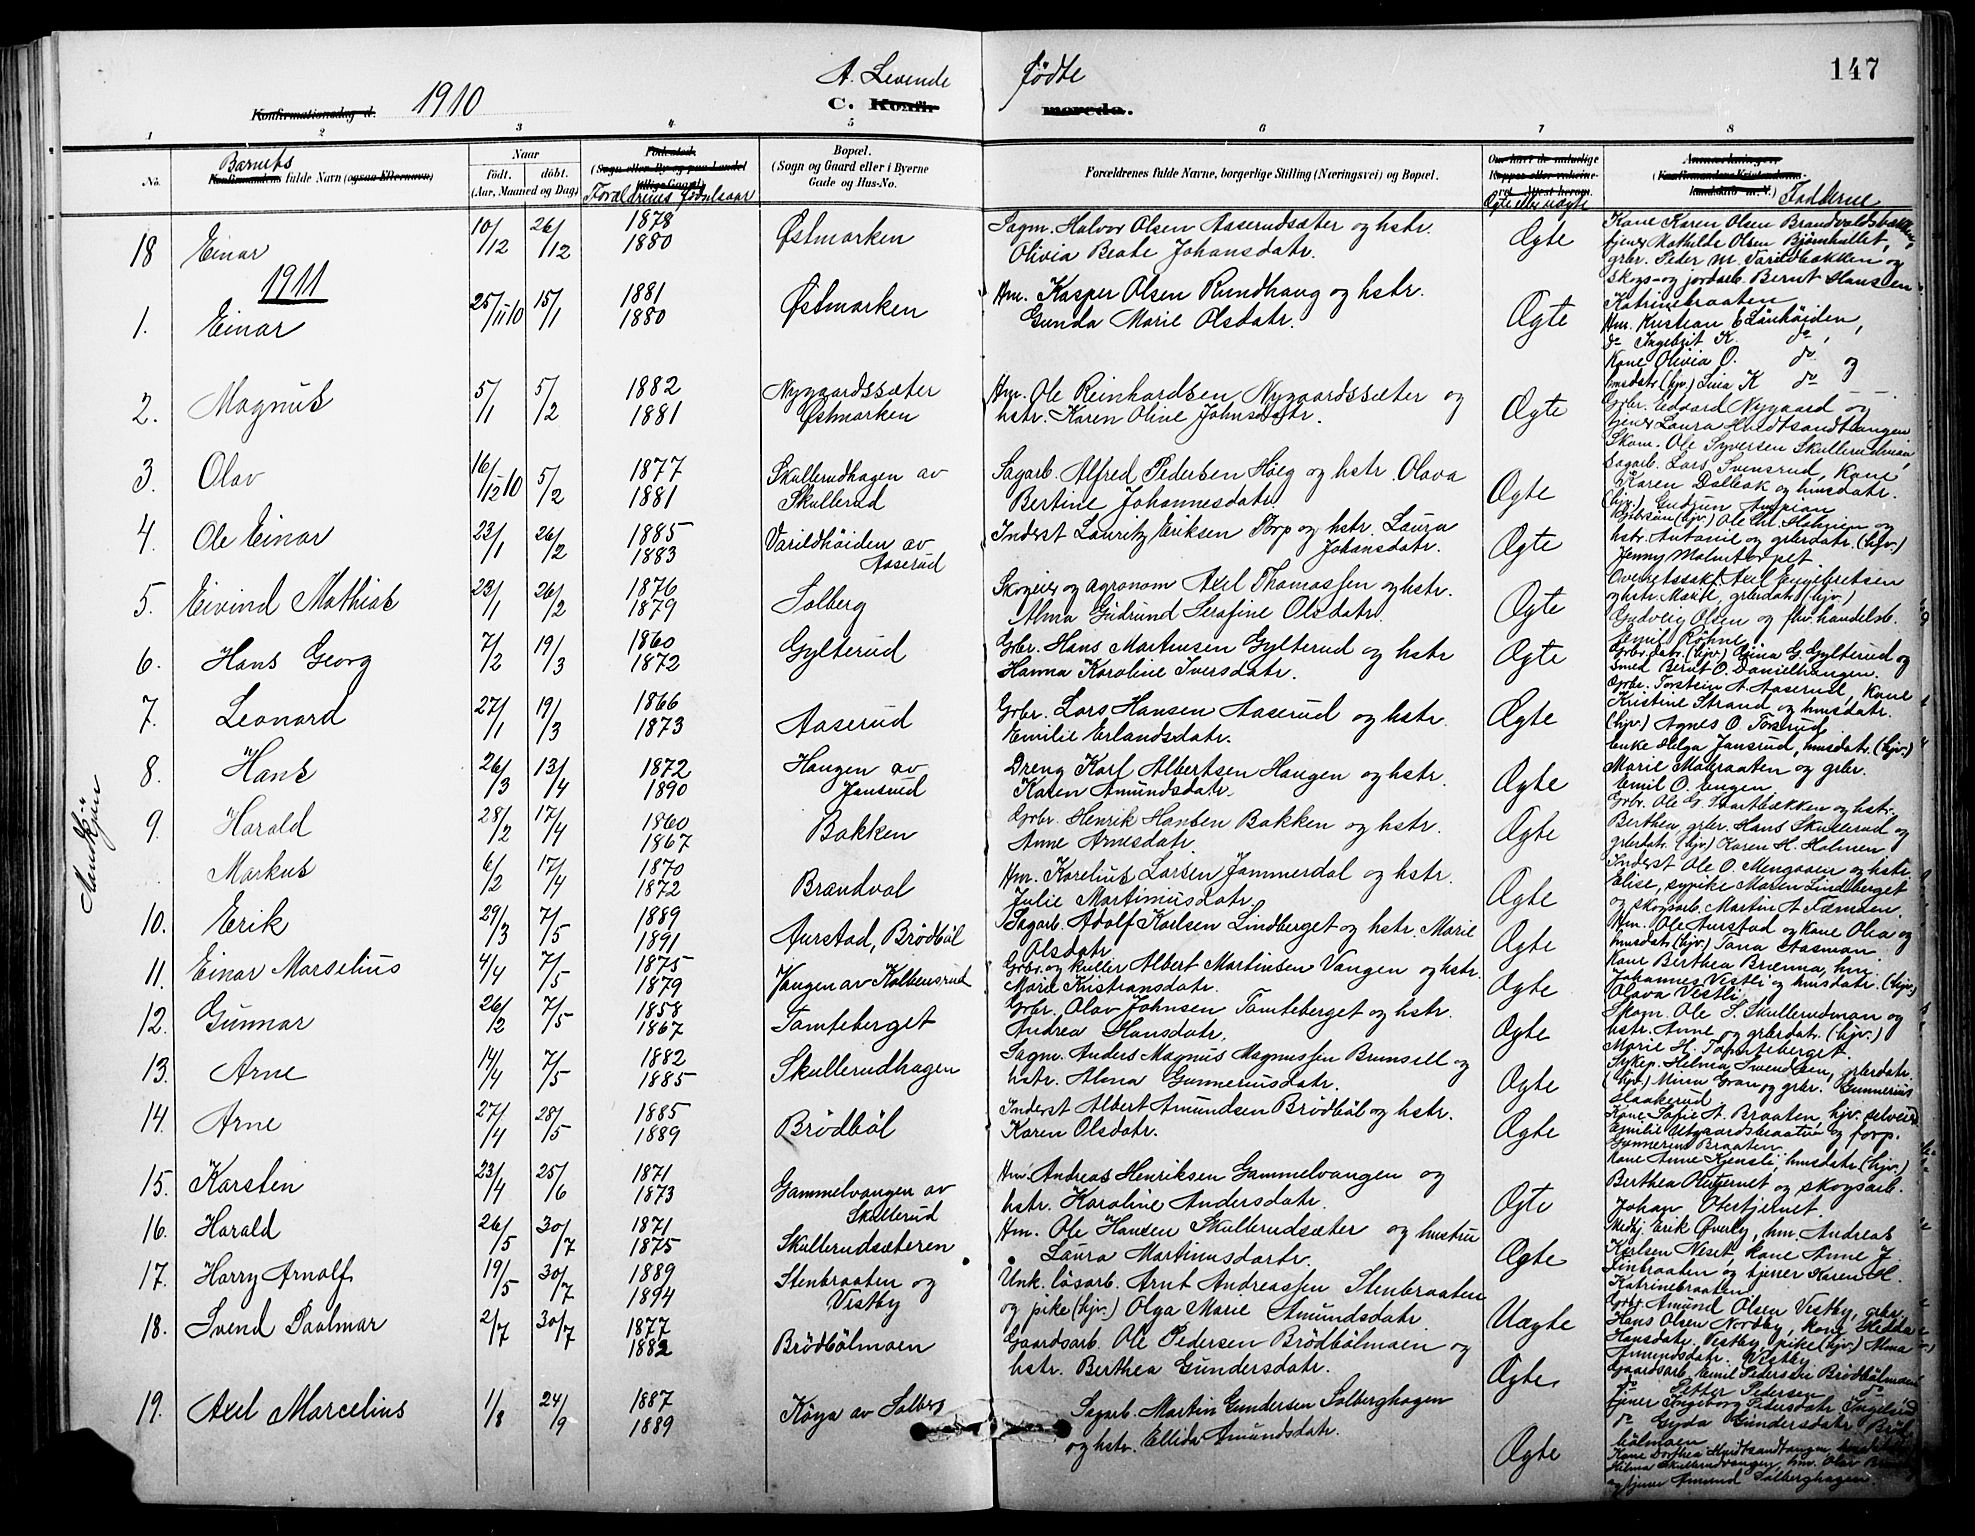 A. Levende Födte
147
Konfirmationsdag d. 1910
C. Konfir mered.
1 2 3 4 5 6 7 8
No.
Barnets
Konfirmandens fulde Navn (ogsaa Efternavn)
Naar
født. døbt.
(Aar, Maaned og Dag)
Fødested.
Foraldrenes Födselsaar
Bopæl.
(Sogn og Gaard eller i Byerne
Gade og Hus-No.
Forældrenes fulde Navne, borgerlige Stilling (Næringsvei) og Bopæl.
Ægte eller uægte
Fadderne
Mandkjön
18 Einar 10/12 26/12 1878 1880 Østmarken
Sagm. Halvor Olsen Aaserudsæter og hstr.
Olivia Beate Johansdatr.
Ægte
Kone Karen Olsen Brandvoldsbakken,
tjener Mathilde Olsen Bjørnhullet,
grbr. Peder M. Varildbakken og
skogs- og jordarb. Bernt Hansen
Katrinebraaten
1911
1. Einar 25/11 10 15/1 1881 1880 Østmarken
Hm. Kasper Olsen Rundhaug og hstr.
Gunda Marie Olsdatr.
Ægte
Hm. Kristian E Lönhöiden,
do Ingebrit K. do,
Kone Olivia O. do og
husdatr. (hjv.) Lina K do
2. Magnus 5/1 5/2 1882 1881 Nygaardssæter
Østmarken
Hm. Ole Reinhardsen Nygaardssæter og
hstr. Karen Oline Johnsdatr.
Ægte
Grbr. Edvard Nygaard og
tjener Laura Hvidtsandtangen
3. Olav 16/12 10 5/2 1877 1881 Skullerudhagen av
Skullerud
Sagarb. Alfred Pedersen Höeg og hstr. Olava
Bertine Johannesdatr.
Ægte
Skom. Ole Syversen Skullerudmoen,
Sagarb. Lars Svensrud, Kone
Karen Dalbak og husdatr.
(hjv.) Gudrun
4. Ole Einar 23/1 26/2 1885 1883 Varildhöiden av
Aaserud
Inderst Lauritz Eriksen Torp og hstr. Laura
Johansdatr.
Ægte
hstr. Antonie og grbrdatr. (hjv.)
Jenny Malmtorpet
5. Eivind Mathias 23/1 26/2 1876 1879 Solberg
Skogeier og agronom Axel Thomassen og hstr.
Alma Gudrund Serafine Olsdatr.
Ægte
Overretssakf. Axel Engebretsen
og hstr. Marie, grbrdatr. (hjv.)
Gudveig Olsen og fhv. handelsb.
Emil Röhne
6. Hans Georg 7/2 19/3 1860 1872 Gylterud
Grbr. Hans Martinsen Gylterud og hstr
Hanna Karoline Iversdatr.
Ægte
Grbr.datr. (hjv.) Gina G. Gylterud og
Smed Bernt O. Danielhaugen.
7. Leonard 27/1 19/3 1866 1873 Aaserud
Grbr. Lars Hansen Aaserud og hstr.
Emilie Erlandsdatr.
Ægte
Grbr. Torstein A. Aaserud, Kone
Kristine Strand og husdatr.
(hjv.) Agnes O. Torsrud
8. Hans 26/3 13/4 1872 1890 Haugen av
Jansrud
Dreng Karl Albertsen Haugen og hstr.
Karen Amundsdatr.
Ægte
Enke Helga Jansrud, husdatr. (hjv.)
Marie Mobraaten og grbr.
Emil O. Engen
9. Harald 28/2 17/4 1860 1867 Bakken
Grbr. Henrik Hansen Bakken og hstr.
Anne Arnesdatr.
Ægte
Grbr. Ole G. Svartbækken og hstr.
Berthea, grbr. Hans Skullerud og
grbrdatr. (hjv.) Karen H. Holmen
Markus 6/2 17/4 1870 1872 Brandval
Hm. Karelius Larsen Jammerdal og hstr.
Julie Martiniusdatr.
Ægte
Inderst Ole O. Mengaaen og hstr.
Elise, sypike Maren Lindberget
og skogsarb. Martin A Tæmoen.
10. Erik 29/3 7/5 1889 1891 Aurstad, Brödböl
Sagarb. Adolf Karlsen Lindberget og hstr. Marie
Olsdatr.
Ægte
Hm. Ole Aurstad og Kone Olea og
husdatr. (hjv.) Jana Stasmoen.
11. Einar Marselius 4/4 7/5 1875 1879 Vangen av Kolbensrud
Grbr. og kuller Albert Martinsen Vangen og hstr.
Marie Kristiansdatr.
Ægte
Kone Berthea Brænna, hm.
Johannes Vestli og husdatr. (hjv.)
Olava Vestli
12. Gunnar 26/2 7/5 1858 1867 Tomteberget
Grbr. Olav Johnsen Tomteberget og hstr.
Andrea Hansdatr.
Ægte
Skom. Ole S. Skullerudmoen og
hstr. Anne og grbrdatr. (hjv.)
Marie H. Tomteberget.
13. Arne 14/4 7/5 1882 1885 Skullerudhagen
Sagm. Anders Magnus Magnussen Brunsell og
hstr. Alma Gunneriusdatr.
Ægte
Sykep. Helma Svendsen, grbrdatr.
(hjv.) Mina Gran og grbr. Gunnerius
Slaakerud
14. Arne 27/4 28/5 1885 1889 Brödböl
Inderst Albert Amundsen Brödböl og hstr.
Karen Olsdatr.
Ægte
Kone Sofie A. Braaten, hjv. selveier
Emilie Utgaardsbraaten og forp.
Gunnerius Braaten
15. Karsten 23/4 25/6 1871 1873 Gammelvangen av
Skullerud
Hm. Andreas Henriksen Gammelvangen og
hstr. Karoline Andersdatr.
Ægte
Kone Anne Kjensli, husdatr. (hjv.)
Berthea Obertjernet og skogsarb.
Johan Obertjernet.
16. Harald 26/5 30/7 1871 1875 Skullerudsæteren
Hm. Ole Hansen Skullerudsæter og hustru
Laura Martinusdatr.
Ægte
Medhj. Erik Øverby, hm. Andreas
Karlsen Neset, kone Anne J
Finbraaten og tjener Karen H.
Katrinebraaten
17. Harry Arnolf 19/5 30/7 1889 1894 Stenbraaten og
Vestby
Unk. lösarb. Arnt Andreassen Stenbraaten
og pike (hjv.) Olga Marie Amundsdatr.
Uægte
Grbr. Amund Olsen Vestby, grbr.
Hans Olsen Nordby, kone Hedda
Hansdatr. Vestby, pike (hjv.) Alma
Amundsdatr. Vestby
18. Svend Daalmar 2/7 30/7 1877 1882 Brödbölmoen
Gaardsarb. Ole Pedersen Brödbölmoen og
hstr. Berthea Gundersdatr.
Ægte
Gaardsarb. Emil Pedersen Brödbölmoen
do Petter Pedersen do
tjener Ingeborg Pedersdatr. Ingelsrud
do Gyda Gundersdatr. Bröd-
bölmoen
19. Axel Marcelius 1/8 24/9 1887 1889 Köya av Solberg
Sagarb. Martin Gundersen Solberghagen
og hstr. Ellida Amundsdatr.
Ægte
Kone Dorthea Hvidtsandtangen
Hilma Skullerudvangen, hm. Olav
og tjener Amund Solberghagen.